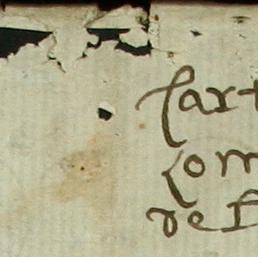 sart
com
de f